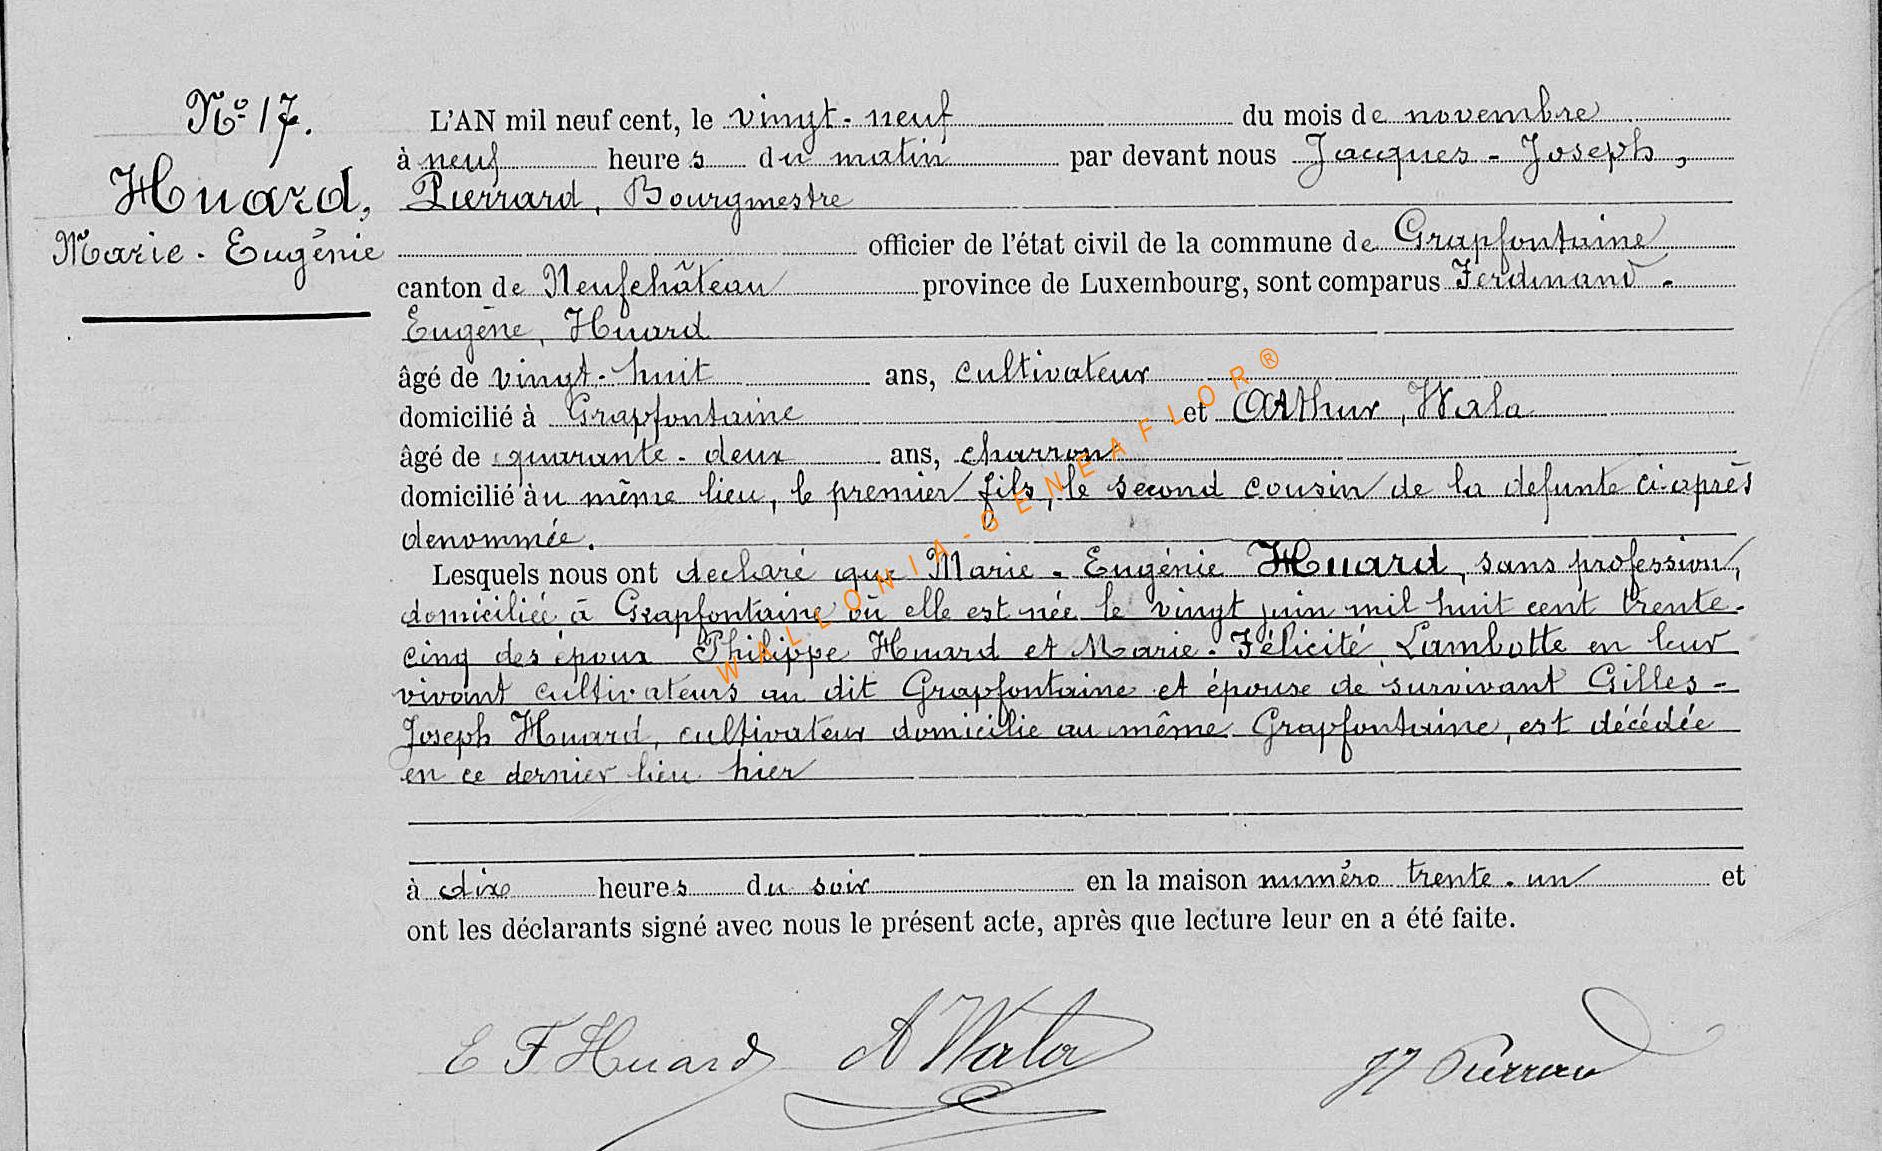 No 17.
Huard,
Marie-Eugénie
L'AN mil neuf cent, le vingt-neuf du mois de novembre
à neuf heures du matin par devant nous Jacques-Joseph,
Pierrard, Bourgmestre
officier de l'état civil de la commune de Grapfontaine
canton de Neufchâteau province de Luxembourg, sont comparus Ferdinand-
Eugène, Huard
âgé de vingt-huit ans, cultivateur
domicilié à Grapfontaine et Arthur, Wala
âgé de quarante-deux ans, charron
domicilié au même lieu, le premier fils, le second cousin de la défunte ci-après
dénommée.
Lesquels nous ont déclaré que Marie-Eugénie Huard, sans profession,
domiciliée à Grapfontaine où elle est née le vingt juin mil huit cent trente-
cinq des époux Philippe Huard et Marie-Félicité Lambotte en leur
vivant cultivateurs au dit Grapfontaine et épouse de survivant Gilles-
Joseph Huard, cultivateur domicilié au même Grapfontaine, est décédée
en ce dernier lieu hier
à dix heures du soir en la maison numéro trente-un et
ont les déclarants signé avec nous le présent acte, après que lecture leur en a été faite.
E F Huard A Wala JJ Pierrard
WALLONIA-GENEAFLOR®